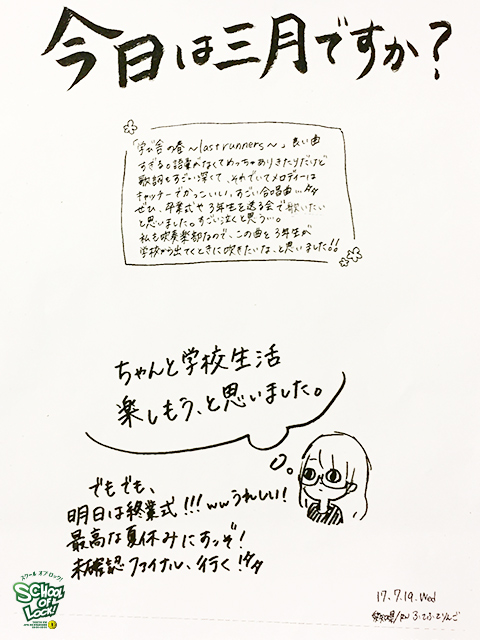 今日は三月ですか？
「学び舎の春〜last runners〜」良い曲
すぎる。語彙がなくてめっちゃありきたりだけど
歌詞もすごい深くて、それでいてメロディーは
キャッチーでかっこいい。すごい合唱曲…
ぜひ、卒業式や3年生を送る会で歌いたい
と思いました。すごい泣くと思う…。
私も吹奏楽部なので、この曲を3年生が
学校から出てくときに吹きたいな、と思いました!!
ちゃんと学校生活
楽しもう、と思いました。
でもでも、
明日は終業式!!!wwうれしい!
最高な夏休みにすっぞ!
未確認ファイナル、行く!
スクール オブ ロック!
SCHOOL
OF
LOCK!
17.7.19.Wed